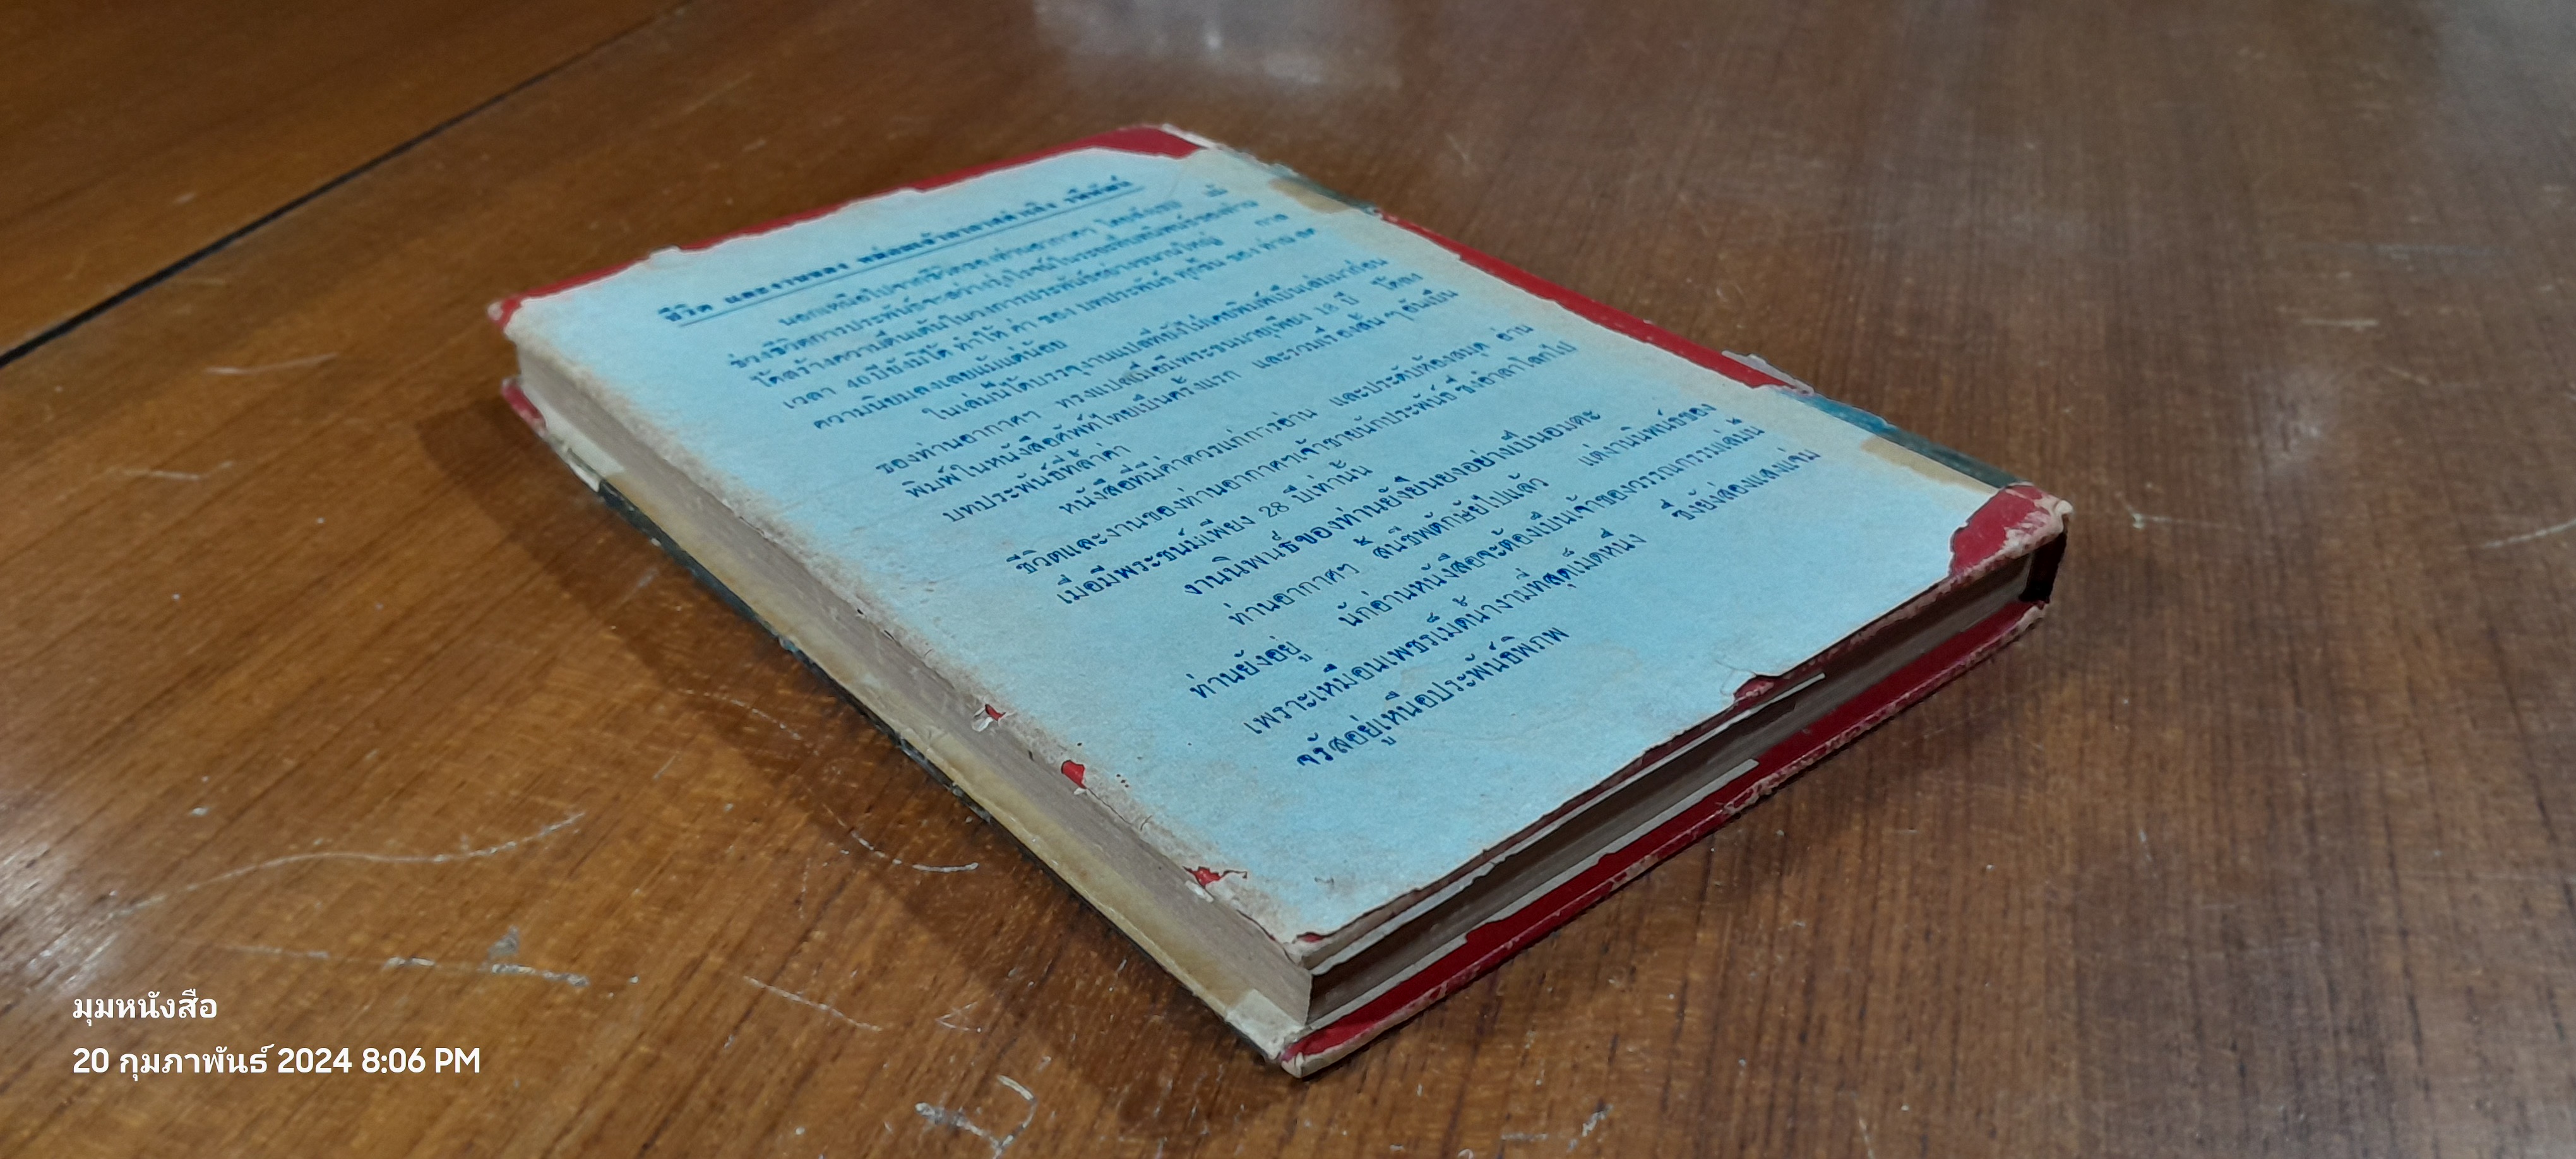 ชีวิต และงานของ หม่อมเจ้าอากาศดำเกิง รพีพัฒน์
นอกเหนือไปจากชีวิตของท่านอากาศฯ โดยสังเขป
ช่วงชีวิตการประพันธ์จากสว่างรุ่งโรจน์ในระดับพินิพนธ์ของท่าน
ได้สร้างความตื่นเต้นในวงการประพันธ์อย่างขนานใหญ่ กาล
เวลา 40 ปียังมิได้ ทำให้ ค่า ของ บทประพันธ์ ทุกชิ้น ของ ท่าน
ความนิยมลงเลยแม้แต่น้อย
ในเล่มนี้ได้บรรจุงานแปลที่ยังไม่เคยพิมพ์เป็นเล่มมาก่อน
ของท่านอากาศฯ ทรงแปลเมื่อมีพระชนมายุเพียง 18 ปี ได้ลง
พิมพ์ในหนังสือศัพท์ไทยเป็นครั้งแรก และรวมเรื่องสั้น ๆ อันเป็น
บทประพันธ์ที่ล้ำค่า
หนังสือที่มีค่าควรแก่การอ่าน และประดับห้องสมุด อ่าน
ชีวิตและงานของท่านอากาศฯเจ้าชายนักประพันธ์ ซึ่งอำลาโลกไป
เมื่อมีพระชนม์เพียง 28 ปีเท่านั้น
งานนิพนธ์ของท่านยังยืนยงอย่างเป็นอมตะ
ท่านอากาศฯ สิ้นชีพตักษัยไปแล้ว แต่งานนิพนธ์ของ
ท่านยังอยู่ นักอ่านหนังสือจะต้องเป็นเจ้าของวรรณกรรมเล่มนี้
เพราะเหมือนเพชรเม็ดน้ำงามที่สุดเม็ดหนึ่ง ซึ่งยังส่องแสงแจ่ม
จรัสอยู่เหนือประพันธ์พิภพ
มุมหนังสือ
20 กุมภาพันธ์ 2024 8:06 PM